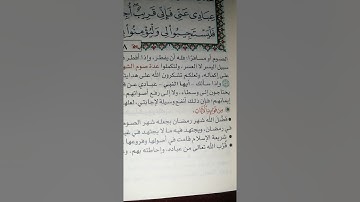 عِبَادِى عَنِّى فَإِنِّى قَرِيبٌ
فَلْيَسْتَجِيبُوا۟ لِى وَلْيُؤْمِنُوا۟
الصيام أو مسافرًا فله أن يفطر، وإذا أفطر
اليسر لا العسر، ولتكملوا عدة صوم الشهر
على إكماله، ولعلكم تشكرون الله على هداية
وإذا سألك - أيها النبي - عبادي عن
يحتاجون إلى وسطاء، ولا إلى رفع أصواتهم
إيمانهم؛ فإن ذلك أنفع وسيلة لإجابتي، لعلهم
من فوائد الآيات
• فضّل الله شهر رمضان بجعله شهر الصوم
في رمضان، ويجتهد فيه ما لا يجتهد في غيره
• شريعة الإسلام قامت في أصولها وفروعها
• قُرْب الله تعالى من عباده، وإحاطته بهم،